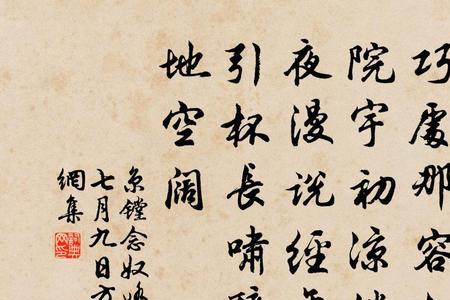 巧處那容
院宇初涼
夜漫說經年
引杯長嘯醉
地空闊
京鏜念奴嬌
七月九日方
網集